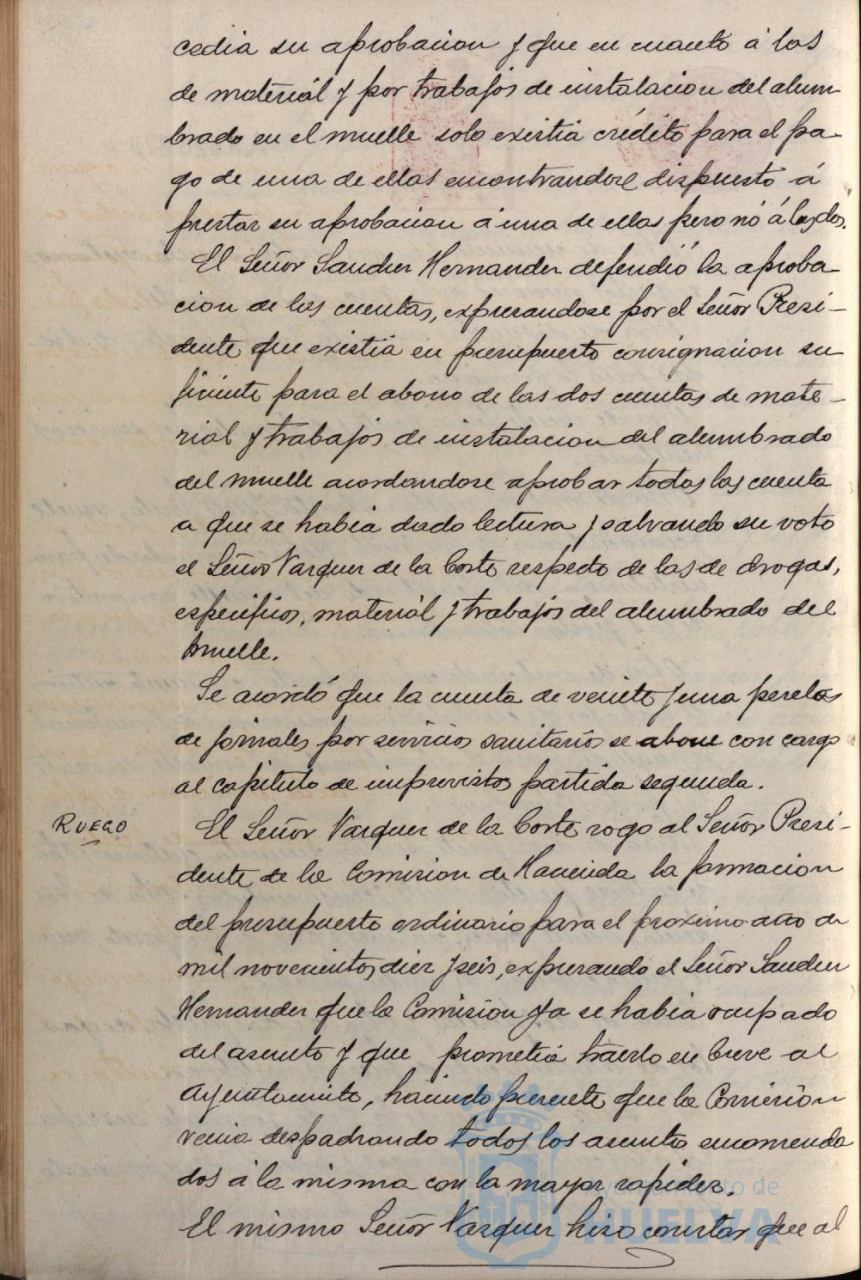 cedia su aprobacion y que en cuanto á las
de material y por trabajos de instalacion del alum-
brado en el muelle solo existia crédito para el pa-
go de una de ellas encontrandose dispuesto á
prestar su aprobacion á una de ellas pero nó á las dos.
El Señor Sanchez Hernandez defendió la aproba
cion de las cuentas, expresandose por el Señor Presi-
dente que existia en presupuesto consignacion su
ficiente para el abono de las dos cuentas de mate-
rial y trabajos de instalacion del alumbrado
del muelle acordandose aprobar todas las cuenta
a que se habia dado lectura y salvando su voto
el Señor Vazquez de la Corte respecto de las de drogas,
especificos, material y trabajos del alumbrado del
muelle.
Se acordó que la cuenta de veinte y una pesetas
de jornales por servicios sanitarios se abone con cargo
al capitulo de imprevistos partida segunda.
RUEGO
El Señor Vazquez de la Corte rogo al Señor Presi-
dente de la Comision de Hacienda la formacion
del presupuesto ordinario para el proximo año de
mil novecientos diez y seis, expresando el Señor Sanchez
Hernandez que la Comision ya se habia ocupado
del asunto y que prometia traerlo en breve al
Ayuntamiento, haciendo presente que la Comision
venia despachando todos los asunto encomenda
dos á la misma con la mayor rapidez.
El mismo Señor Vazquez hizo constar que al
Ayuntamiento de
HUELVA